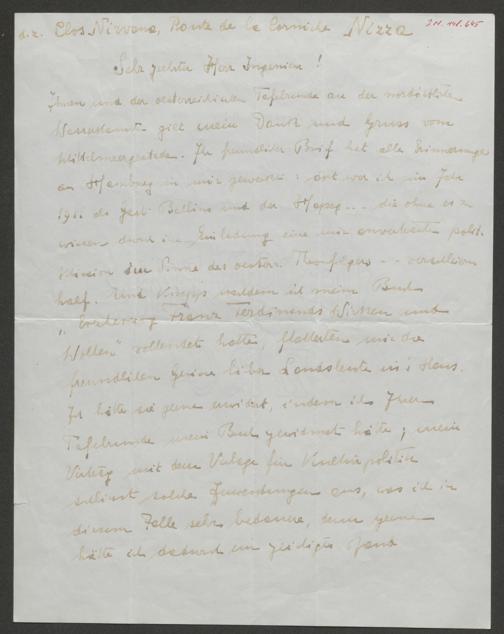 d.z. Clos Nirvana, Route de la Corniche Nizza
Sehr geehrter Herr Ingenieur!
Ihnen und der oesterreichischen Tafelrunde an der nordöstlichen
gilt mein Dank und Gruss vom
Mittelmeergestade. Ihr freundlicher Brief hat alle Erinnerungen
an Hamburg in mir geweckt: dort war ich im Jahr
191. als Gast Ballins und der Hapag... die ohne es zu
wissen durch ihre Einladung eine mir anvertraute polit.
Mission im Sinne des oesterr. Thronfolgers -- verschleiern
half. Und knapp nachdem ich mein Buch
"Erzherzog Franz Ferdinands Wirken und
Wollen" vollendet hatte, flatterten mir die
freundlichen Grüsse lieber Landsleute ins Haus.
Ich hätte sie gerne erwidert, indem ich Ihrer
Tafelrunde mein Buch gewidmet hätte; mein
Vertrag mit dem Verlage für Kulturpolitik
schliesst solche Zuwendungen aus, was ich in
diesem Falle sehr bedauere, denn gerne
hätte ich dadurch ein geistiges Band